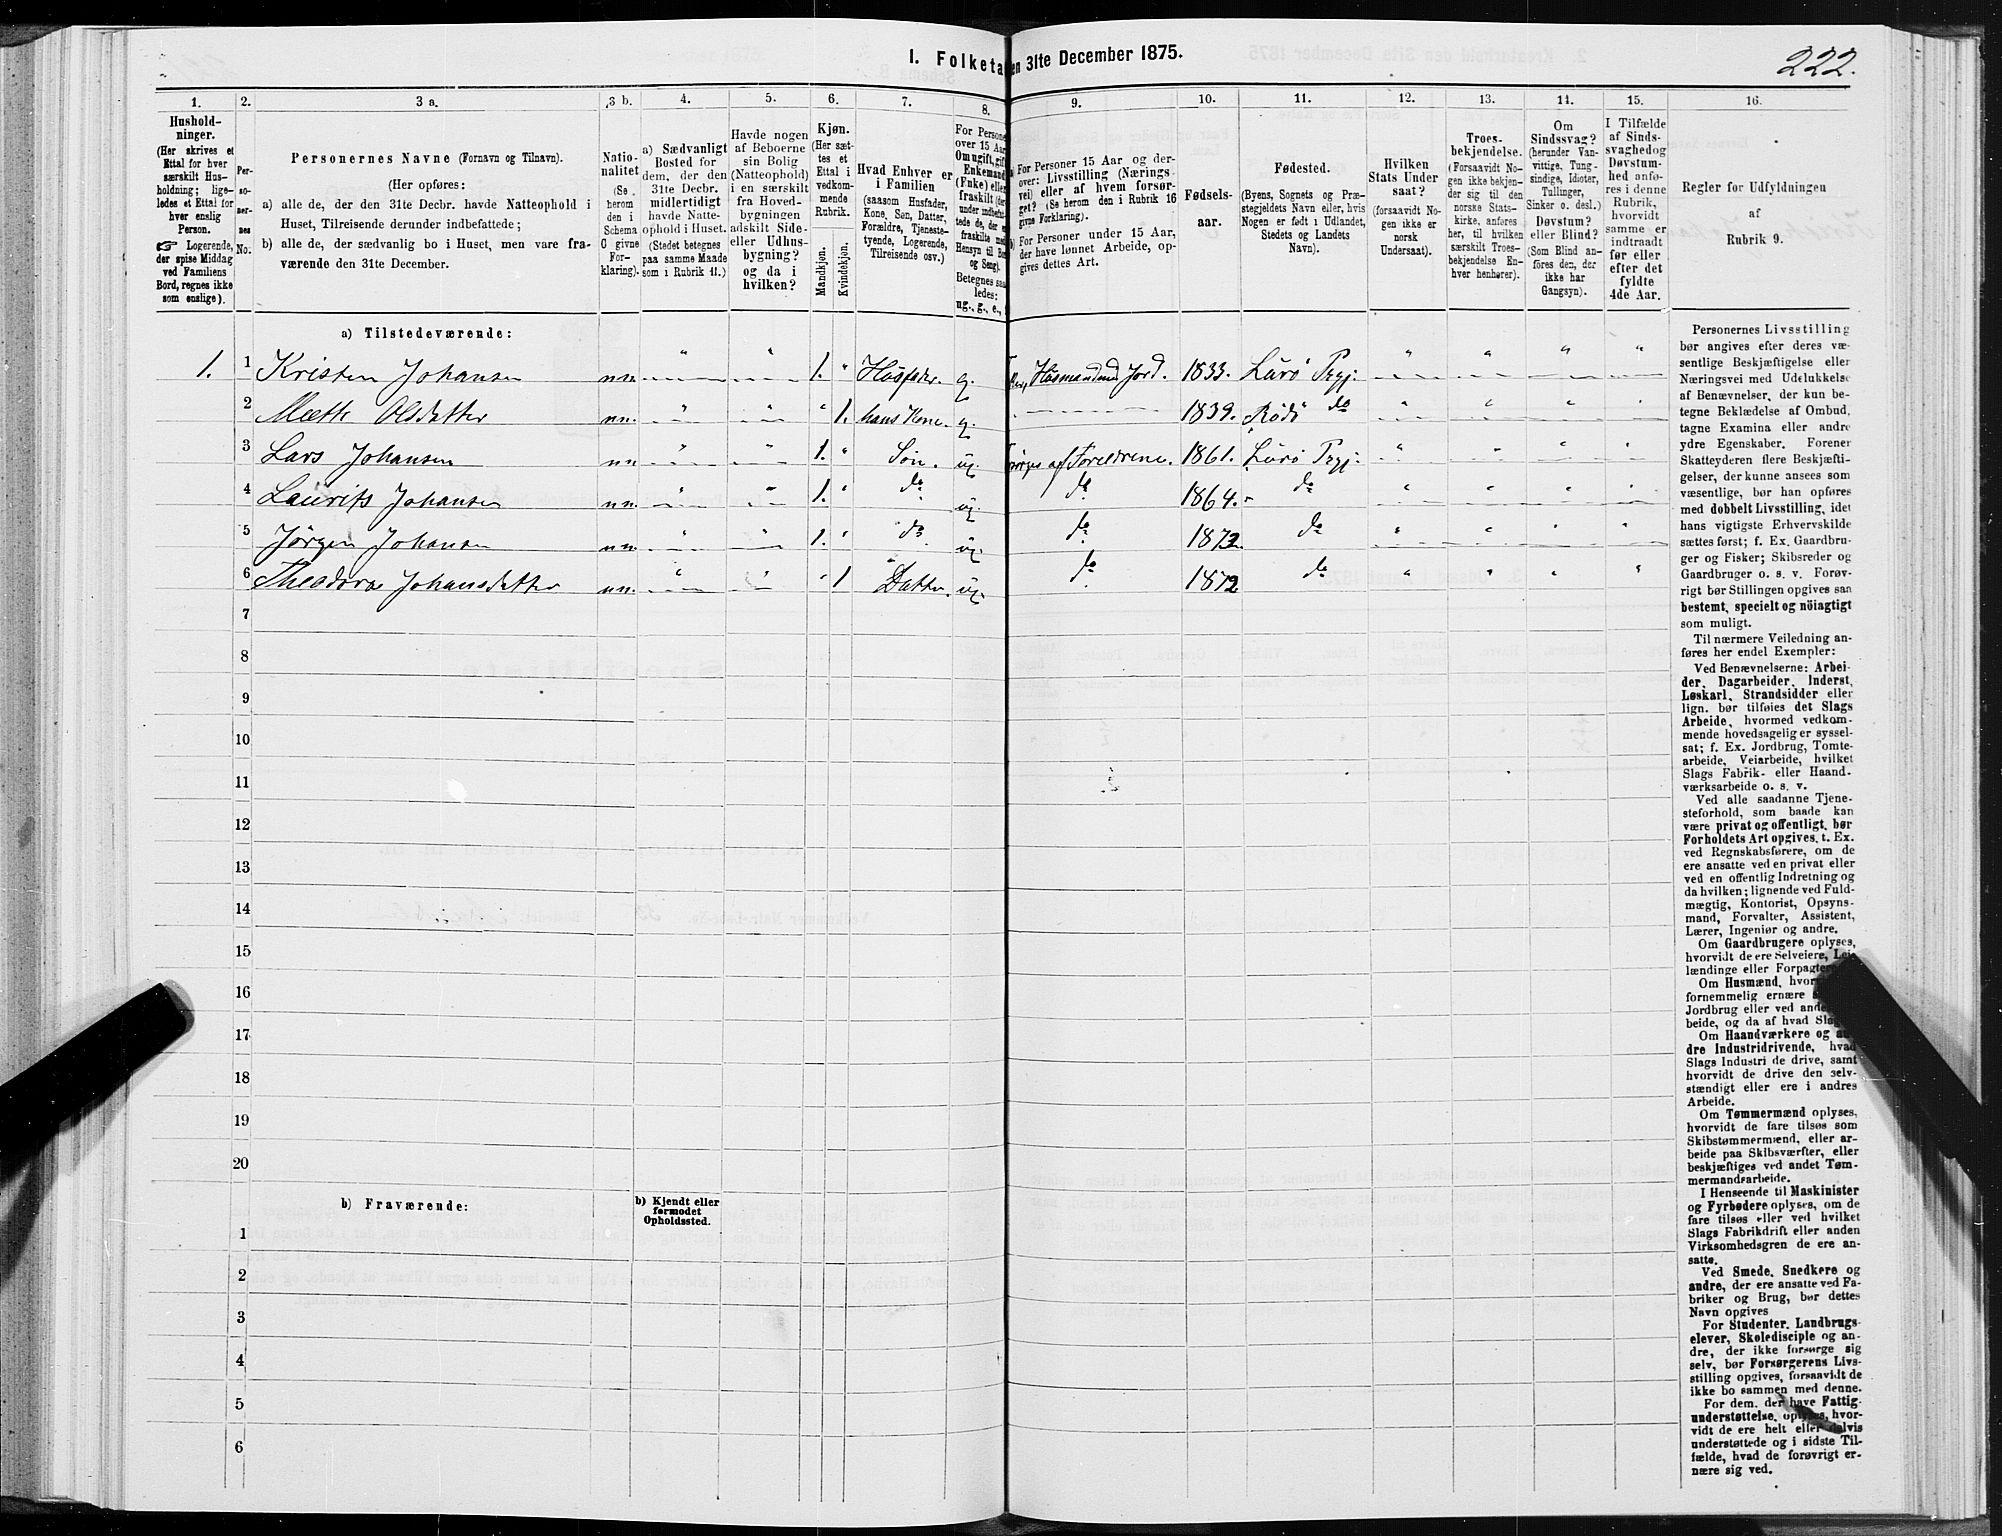 I. Folketa en 31te December 1875.
222.
1. 2. 3 a. 3 b. 4. 5. 6. 7. 8. 9. 10. 11. 12. 13. 14. 15. 16.
Hushold-
ninger.
(Her skrives et
Ettal for hver
særskilt Hus-
holdning; lige-
ledes et Ettal for
hver enslig
Person.
☞ Logerende,
der spise Middag
ved Familiens
Bord, regnes ikke
som enslige).
Per-
so-
ner-
nes
No.
Personernes Navne (Fornavn og Tilnavn).
(Her opføres:
a) alle de, der den 31te Decbr. havde Natteophold i
Huset, Tilreisende derunder indbefattede;
b) alle de, der sædvanlig bo i Huset, men vare fra-
værende den 31te December.
Natio-
nalitet
(Se
herom
den i
Schema
C givne
For-
klaring).
a) Sædvanligt
Bosted for
dem, der den
31te Decbr.
midlertidigt
havde Natte-
ophold i Huset.
(Stedet betegnes
paa samme Maade
som i Rubrik 11.)
Havde nogen
af Beboerne
sin Bolig
(Natteophold)
i en særskilt
fra Hoved-
bygningen
adskilt Side-
eller Udhus-
bygning?
og da i
hvilken?
Kjøn.
(Her sæt-
tes et
Ettal i
vedkom-
mende
Rubrik.
Mandkjøn.
Kvindekjøn.
Hvad Enhver er
i Familien
(saasom Husfader,
Kone, Søn, Datter,
Forældre, Tjeneste-
tyende, Logerende,
Tilreisende osv.)
For Persone
over 15 Aar
Om ugift, gift
Enkemand
(Enke) eller
fraskilt (her
under indbefat-
tede de, der ere
fraskilte med
Hensyn til Bo
og Seng).
Betegnes saa
ledes:
ug., g., e.,
a) For Personer 15 Aar og der-
over: Livsstilling (Nærings-
vei) eller af hvem forsør-
get? (Se herom den i Rubrik 16
givne Forklaring).
b) For Personer under 15 Aar,
der have lønnet Arbeide, op-
gives dettes Art.
Fødsels-
aar.
Fødested.
(Byens, Sognets og Præ-
stegjeldets Navn eller, hvis
Nogen er født i Udlandet,
Stedets og Landets
Navn).
Hvilken
Stats Under
saat?
(forsaavidt No-
gen ikke er
norsk
Undersaat).
Troes-
bekjendelse.
(Forsaavidt No-
gen ikke bekjen-
der sig til den
norske Stats-
kirke, anføres
her, til hvilken
særskilt Troes-
bekjendelse En-
hver henhører).
Om
Sindssvag?
(herunder Van-
vittige, Tung-
sindige, Idioter,
Tullinger,
Sinker o. desl.)
Døvstum?
eller Blind?
(Som Blind an-
føres den, der
ikke har
Gangsyn).
I Tilfælde
af Sinds-
svaghed og
Døvstum-
hed anfø-
res i denne
Rubrik,
hvorvidt
samme er
indtraadt
før eller
efter det
fyldte
4de Aar.
Regler for Udfyldningen
af
Rubrik 9.
a) Tilstedeværende:
1. 1 Kristen Johansen nn. " " 1. " Husfader. g. Husmand med Jord. 1833. Lurø Prgj. " " " "
2 Mette Olsdatter nn. " " " 1. hans Kone. g. 1839. Rødø do " " " "
3 Lars Johansen nn. " " 1. " Søn. ug. Forsørges af Forældrene. 1861. Lurø Prgj. " " " "
4 Laurits Johansen nn. " " 1. " do ug. do 1864. do " " " "
5 Jørgen Johansen nn. " " 1. " do. ug. do 1872. do " " " "
6 Theodora Johansdatter nn. " " " 1 Datter. ug. do 1872 do " " " "
7
8
9
10
11
12
13
14
15
16
17
18
19
20
b) Fraværende:
b) Kjendt eller
formodet
Opholdssted.
1
2
3
4
5
6
Personernes Livsstilling
bør angives efter deres væ-
sentlige Beskjæftigelse eller
Næringsvei med Udelukkelse
af Benævnelser, der kun be-
tegne Beklædelse af Ombud,
tagne Examina eller andre
ydre Egenskaber. Forener
Skatteyderen flere Beskjæfti-
gelser, der kunne ansees som
væsentlige, bør han opføres
med dobbelt Livsstilling, idet
hans vigtigste Erhvervskilde
sættes først; f. Ex. Gaardbru-
ger og Fisker; Skibsreder og
Gaardbruger o. s. v. Forøv-
rigt bør Stillingen opgives saa
bestemt, specielt og nöiagtigt
som muligt.
Til nærmere Veiledning an-
føres her endel Exempler:
Ved Benævnelserne: Arbei-
der, Dagarbeider, Inderst,
Løskarl, Strandsidder eller
lign. bør tilføies det Slags
Arbeide, hvormed vedkom-
mende hovedsagelig er syssel-
sat; f. Ex. Jordbrug, Tomte-
arbeide, Veiarbeide, hvilket
Slags Fabrik- eller Haand-
værksarbeide o. s. v.
Ved alle saadanne Tjene-
steforhold, som baade kan
være privat og offentligt, bør
Forholdets Art opgives, t. Ex.
ved Regnskabsførere, om de
ere ansatte ved en privat eller
ved en offentlig Indretning og
da hvilken; lignende ved Fuld-
mægtig, Kontorist, Opsyns-
mand, Forvalter, Assistent,
Lærer, Ingeniør og andre.
Om Gaardbrugere oplyses,
hvorvidt de ere Selveiere, Lei-
lændinge eller Forpagtere
Om Husmænd, hvor
fornemmelig ernære
Jordbrug eller ved ande
beide, og da af hvad Slags
Om Haandværkere og an-
dre Industridrivende, hvad
Slags Industri de drive, samt
hvorvidt de drive den selv-
stændigt eller ere i andres
Arbeide.
Om Tømmermænd oplyses,
hvorvidt de fare tilsøs som
Skibstømmermænd, eller ar-
beide paa Skibsværfter, eller
beskjæftiges ved andet Tøm-
mermandsarbeide.
I Henseende til Maskinister
og Fyrbødere oplyses, om de
fare tilsøs eller ved hvilket
Slags Fabrikdrift eller anden
Virksomhedsgren de ere an-
satte.
Ved Smede, Snedkere og
andre, der ere ansatte ved Fa-
briker og Brug, bør dettes
Navn opgives
For Studenter, Landbrugs-
elever, Skoledisciple og an-
dre, der ikke forsørge sig
selv, bør Forsørgerens Livs-
stilling opgives, forsaavidt de
ikke bo sammen med denne.
For dem, der have Fattig-
understøttelse, oplyses, hvor-
vidt de ere helt eller delvis
understøttede og i sidste Til-
fælde, hvad de forøvrigt er-
nære sig ved.